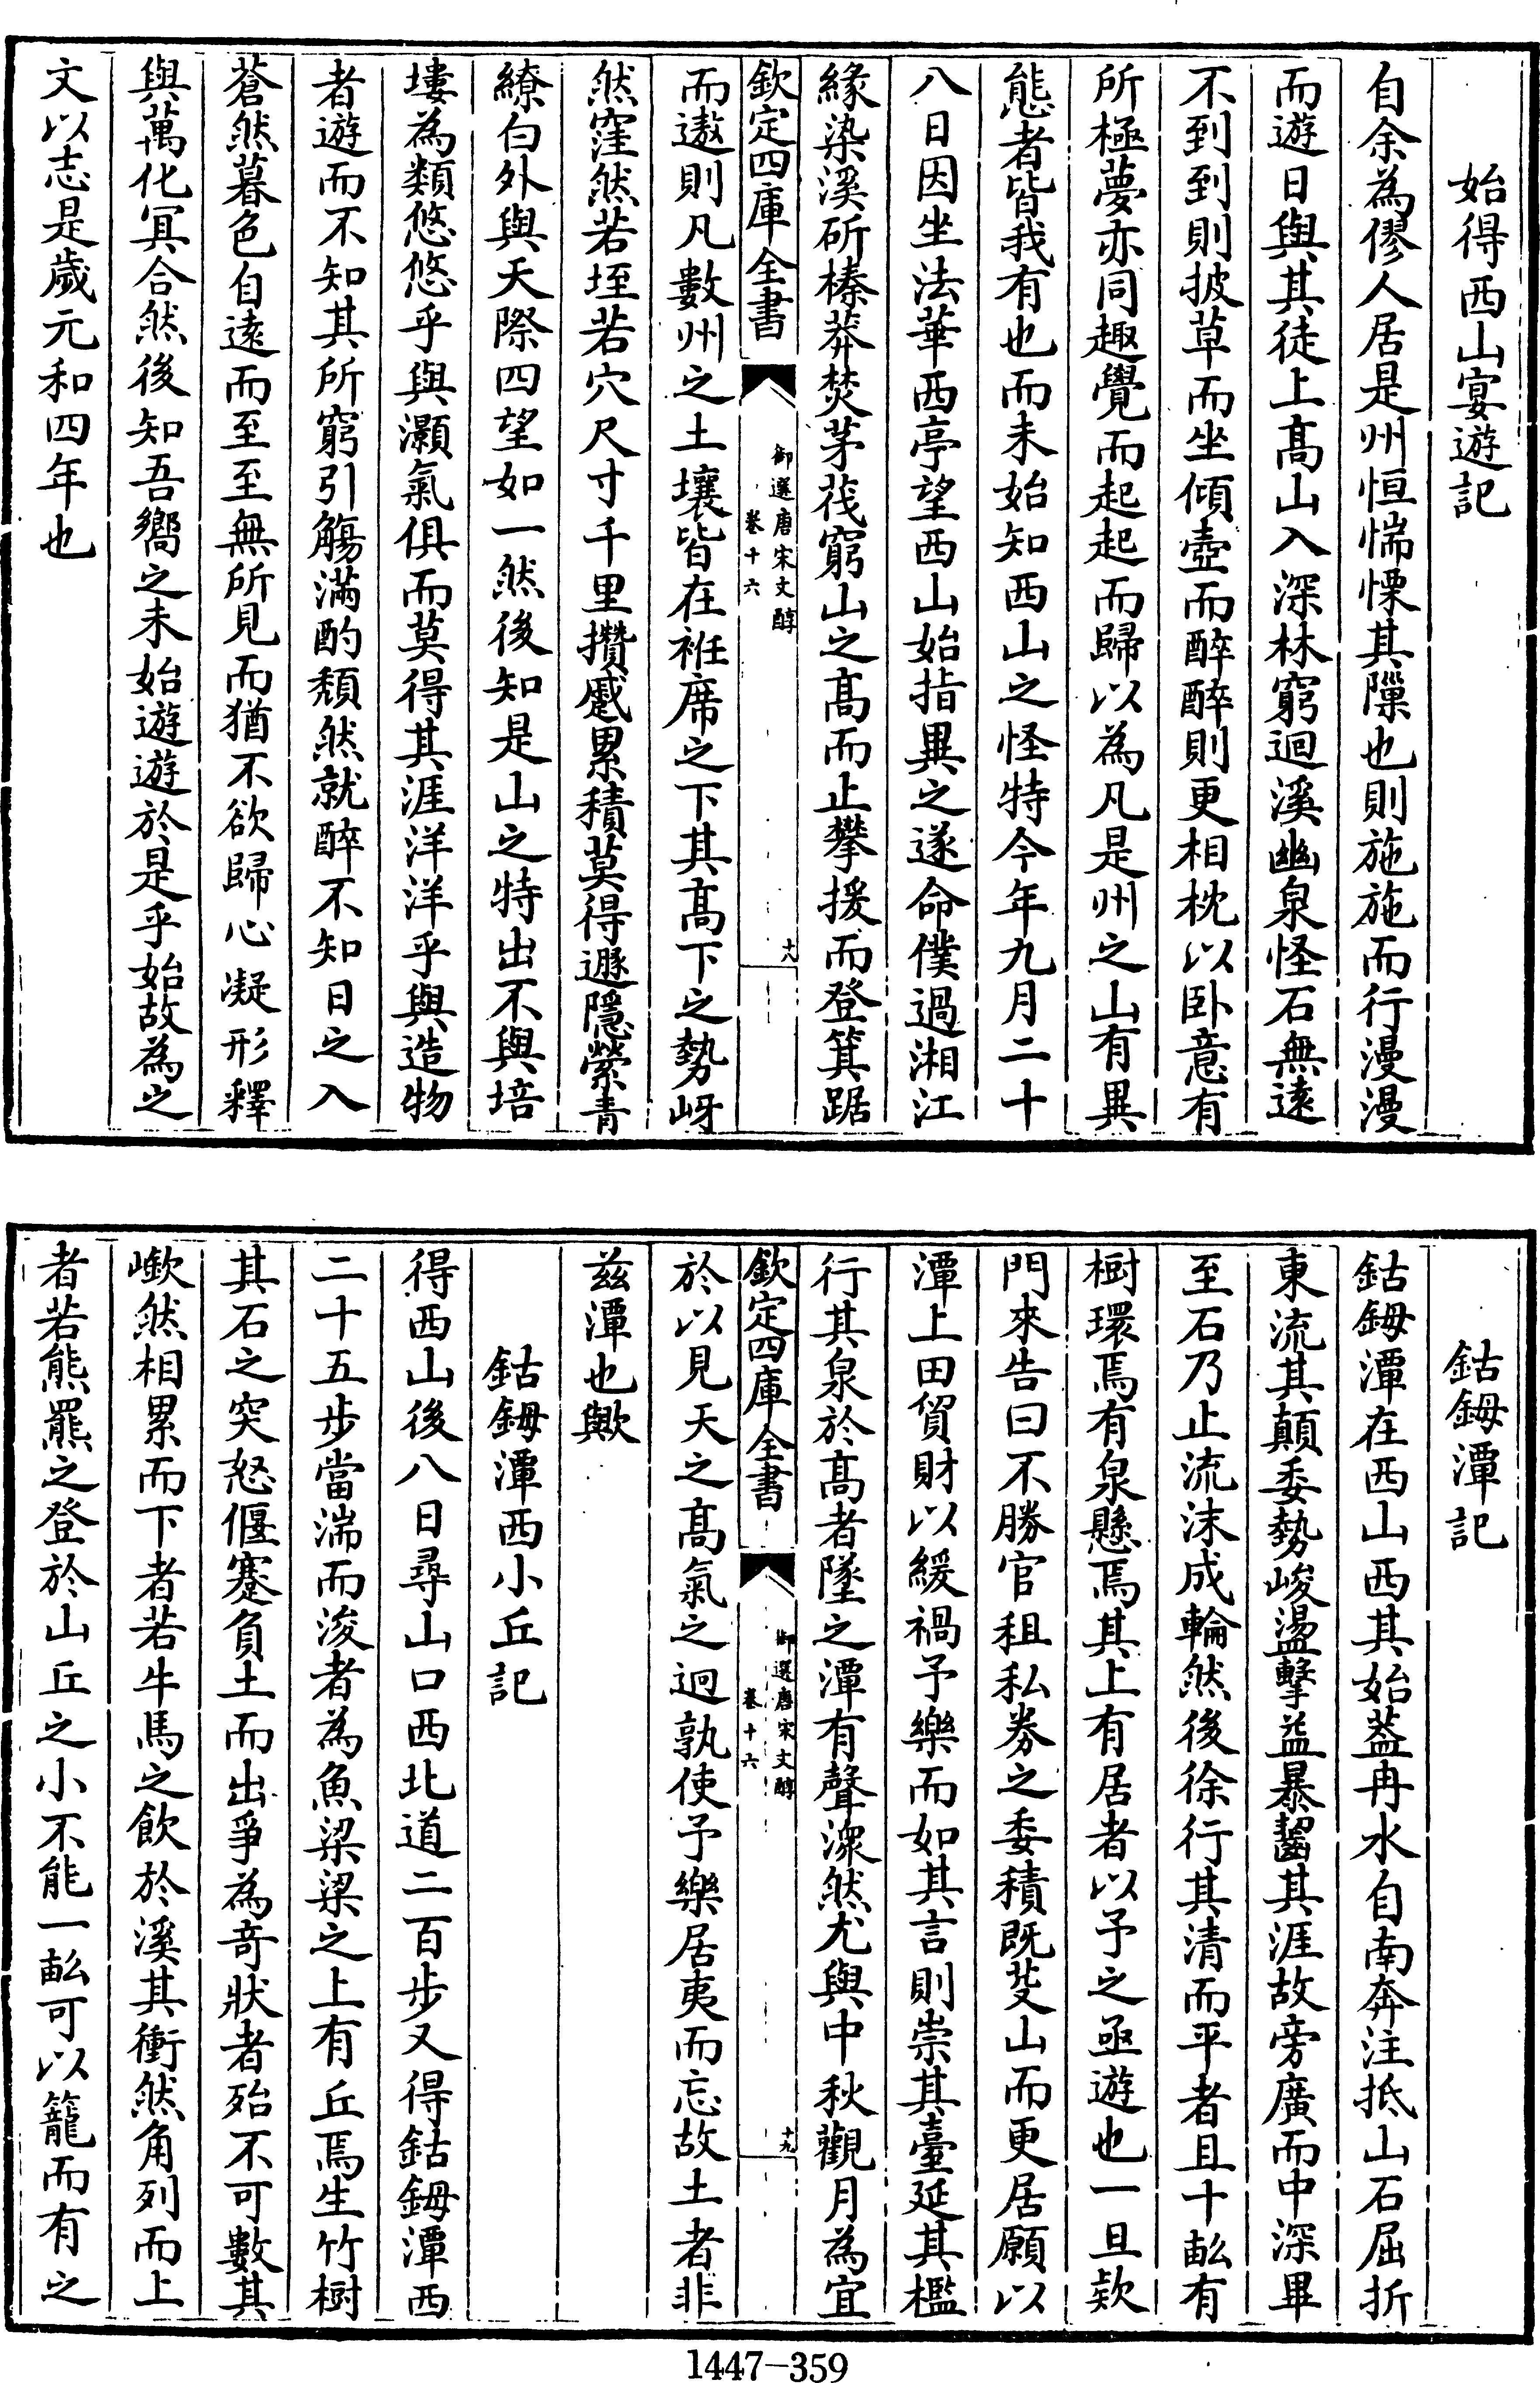 始得西山宴遊記
自余為僇人居是州恒惴慄其隟也則施施而行漫漫
而遊日與其徒上髙山入深林窮迴溪幽泉怪石無逺
不到到則披草而坐傾壺而醉醉則更相枕以卧意有
所極夢亦同趣覺而起起而歸以為凡是州之山有異
態者皆我有也而未始知西山之怪特今年九月二十
八日因坐法華西亭望西山始指異之遂命僕過湘江
緣染溪斫榛莽焚茅茷窮山之髙而止攀援而登箕踞
欽定四庫全書
御選唐宋文醇
卷十六
十八
而遨則凡數州之土壤皆在袵席之下其髙下之勢岈
然窪然若垤若穴尺寸千里攢蹙累積莫得遯隱縈青
繚白外與天際四望如一然後知是山之特出不與培
塿為類悠悠乎與灝氣俱而莫得其涯洋洋乎與造物
者遊而不知其所窮引觴滿酌頹然就醉不知日之入
蒼然暮色自逺而至至無所見而猶不欲歸心凝形釋
與萬化冥合然後知吾嚮之未始遊遊於是乎始故為之
文以志是歲元和四年也
鈷鉧潭記
鈷鉧潭在西山西其始葢冉水自南奔注抵山石屈折
東流其顛委勢峻盪擊益暴齧其涯故旁廣而中深畢
至石乃止流沫成輪然後徐行其清而平者且十畝有
樹環焉有泉懸焉其上有居者以予之亟遊也一旦款
門來告曰不勝官租私券之委積既芟山而更居願以
潭上田貿財以緩禍予樂而如其言則崇其臺延其檻
行其泉於髙者墜之潭有聲潨然尤與中秋觀月為宜
欽定四庫全書
御選唐宋文醇
卷十六
十九
於以見天之髙氣之迥孰使予樂居夷而忘故土者非
兹潭也歟
鈷鉧潭西小丘記
得西山後八日尋山口西北道二百步又得鈷鉧潭西
二十五步當湍而浚者為魚梁梁之上有丘焉生竹樹
其石之突怒偃蹇負土而出爭為奇狀者殆不可數其
嶔然相累而下者若牛馬之飲於溪其衝然角列而上
者若熊羆之登於山丘之小不能一畝可以籠而有之
1447-359